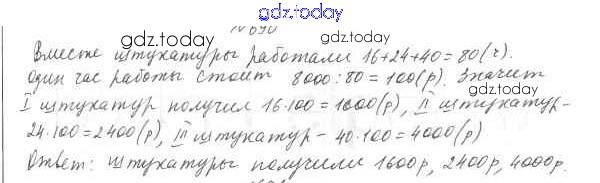 gdz.today
№ 690
gdz.today gdz.today
Вместе штукатуры работали 16+24+40=80(ч).
Один час работы стоит 8000:80=100(р). Значит
I штукатур получил 16·100=1600(р), II штукатур-
24·100=2400(р), III штукатур - 40·100=4000(р)
Ответ: штукатуры получили 1600р, 2400р, 4000р.
gdz.today gdz.today